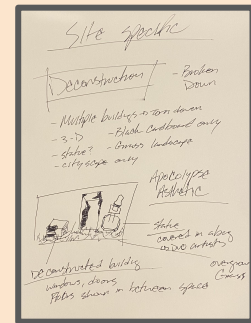 Site Specific
Deconstruction
- Broken
Down
- Multiple buildings → torn down
- 3-D
- Black Cardboard only
- statue?
- Grass landscape
- cityscape only
Apocalypse
Asthetic
statue
covered in
artists
overgrown
Grass
Deconstructed building
windows, doors
shown in between space